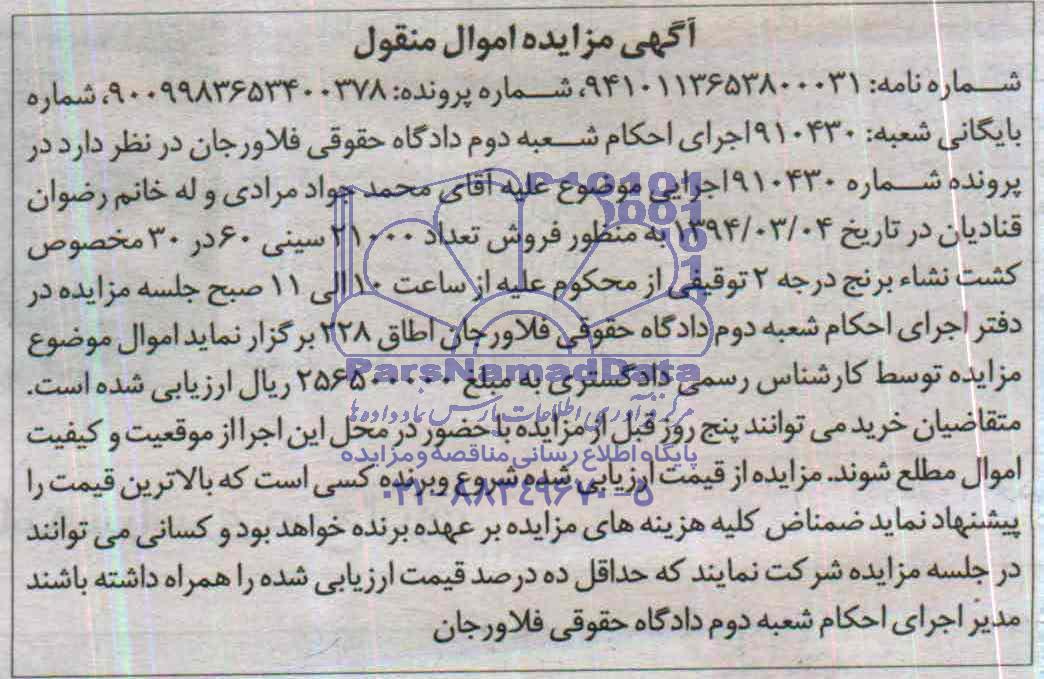 آگهی مزایده اموال منقول
شماره نامه: ۹۴۱۰۱۱۳۶۵۳۸۰۰۰۳۱، شماره پرونده: ۹۰۰۹۹۸۳۶۵۳۴۰۰۳۷۸، شماره
بایگانی شعبه: ۹۱۰۴۳۰اجرای احکام شعبه دوم دادگاه حقوقی فلاورجان در نظر دارد در
پرونده شماره ۹۱۰۴۳۰اجرایی موضوع علیه آقای محمد جواد مرادی و له خانم رضوان
قنادیان در تاریخ ۱۳۹۴/۰۳/۰۴ به منظور فروش تعداد ۲۱۰۰۰ سینی ۶۰در ۳۰ مخصوص
کشت نشاء برنج درجه ۲ توقیفی از محکوم علیه از ساعت ۱۰الی ۱۱ صبح جلسه مزایده در
دفتر اجرای احکام شعبه دوم دادگاه حقوقی فلاورجان اطاق ۲۲۸ برگزار نماید اموال موضوع
مزایده توسط کارشناس رسمی دادگستری به مبلغ ۲۵۶۵۰۰۰۰۰ ریال ارزیابی شده است.
متقاضیان خرید می توانند پنج روز قبل از مزایده با حضور در محل این اجرا از موقعیت و کیفیت
اموال مطلع شوند. مزایده از قیمت ارزیابی شده شروع وبرنده کسی است که بالاترین قیمت را
پیشنهاد نماید ضمناض کلیه هزینه های مزایده بر عهده برنده خواهد بود و کسانی می توانند
در جلسه مزایده شرکت نمایند که حداقل ده درصد قیمت ارزیابی شده را همراه داشته باشند
مدیر اجرای احکام شعبه دوم دادگاه حقوقی فلاورجان
ParsNamadData
مرکز فرآوری اطلاعات پارس نماد داده ها
پایگاه اطلاع رسانی مناقصه و مزایده
۰۲۱-۸۸۳۴۹۶۷۰-۵